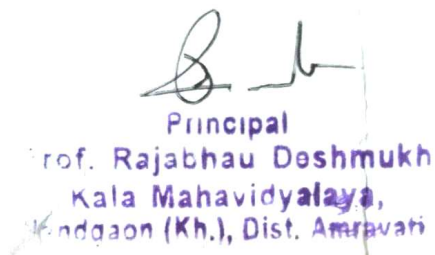 Principal
rof. Rajabhau Deshmukh
Kala Mahavidyalaya,
ndgaon (Kh.), Dist. Amravati